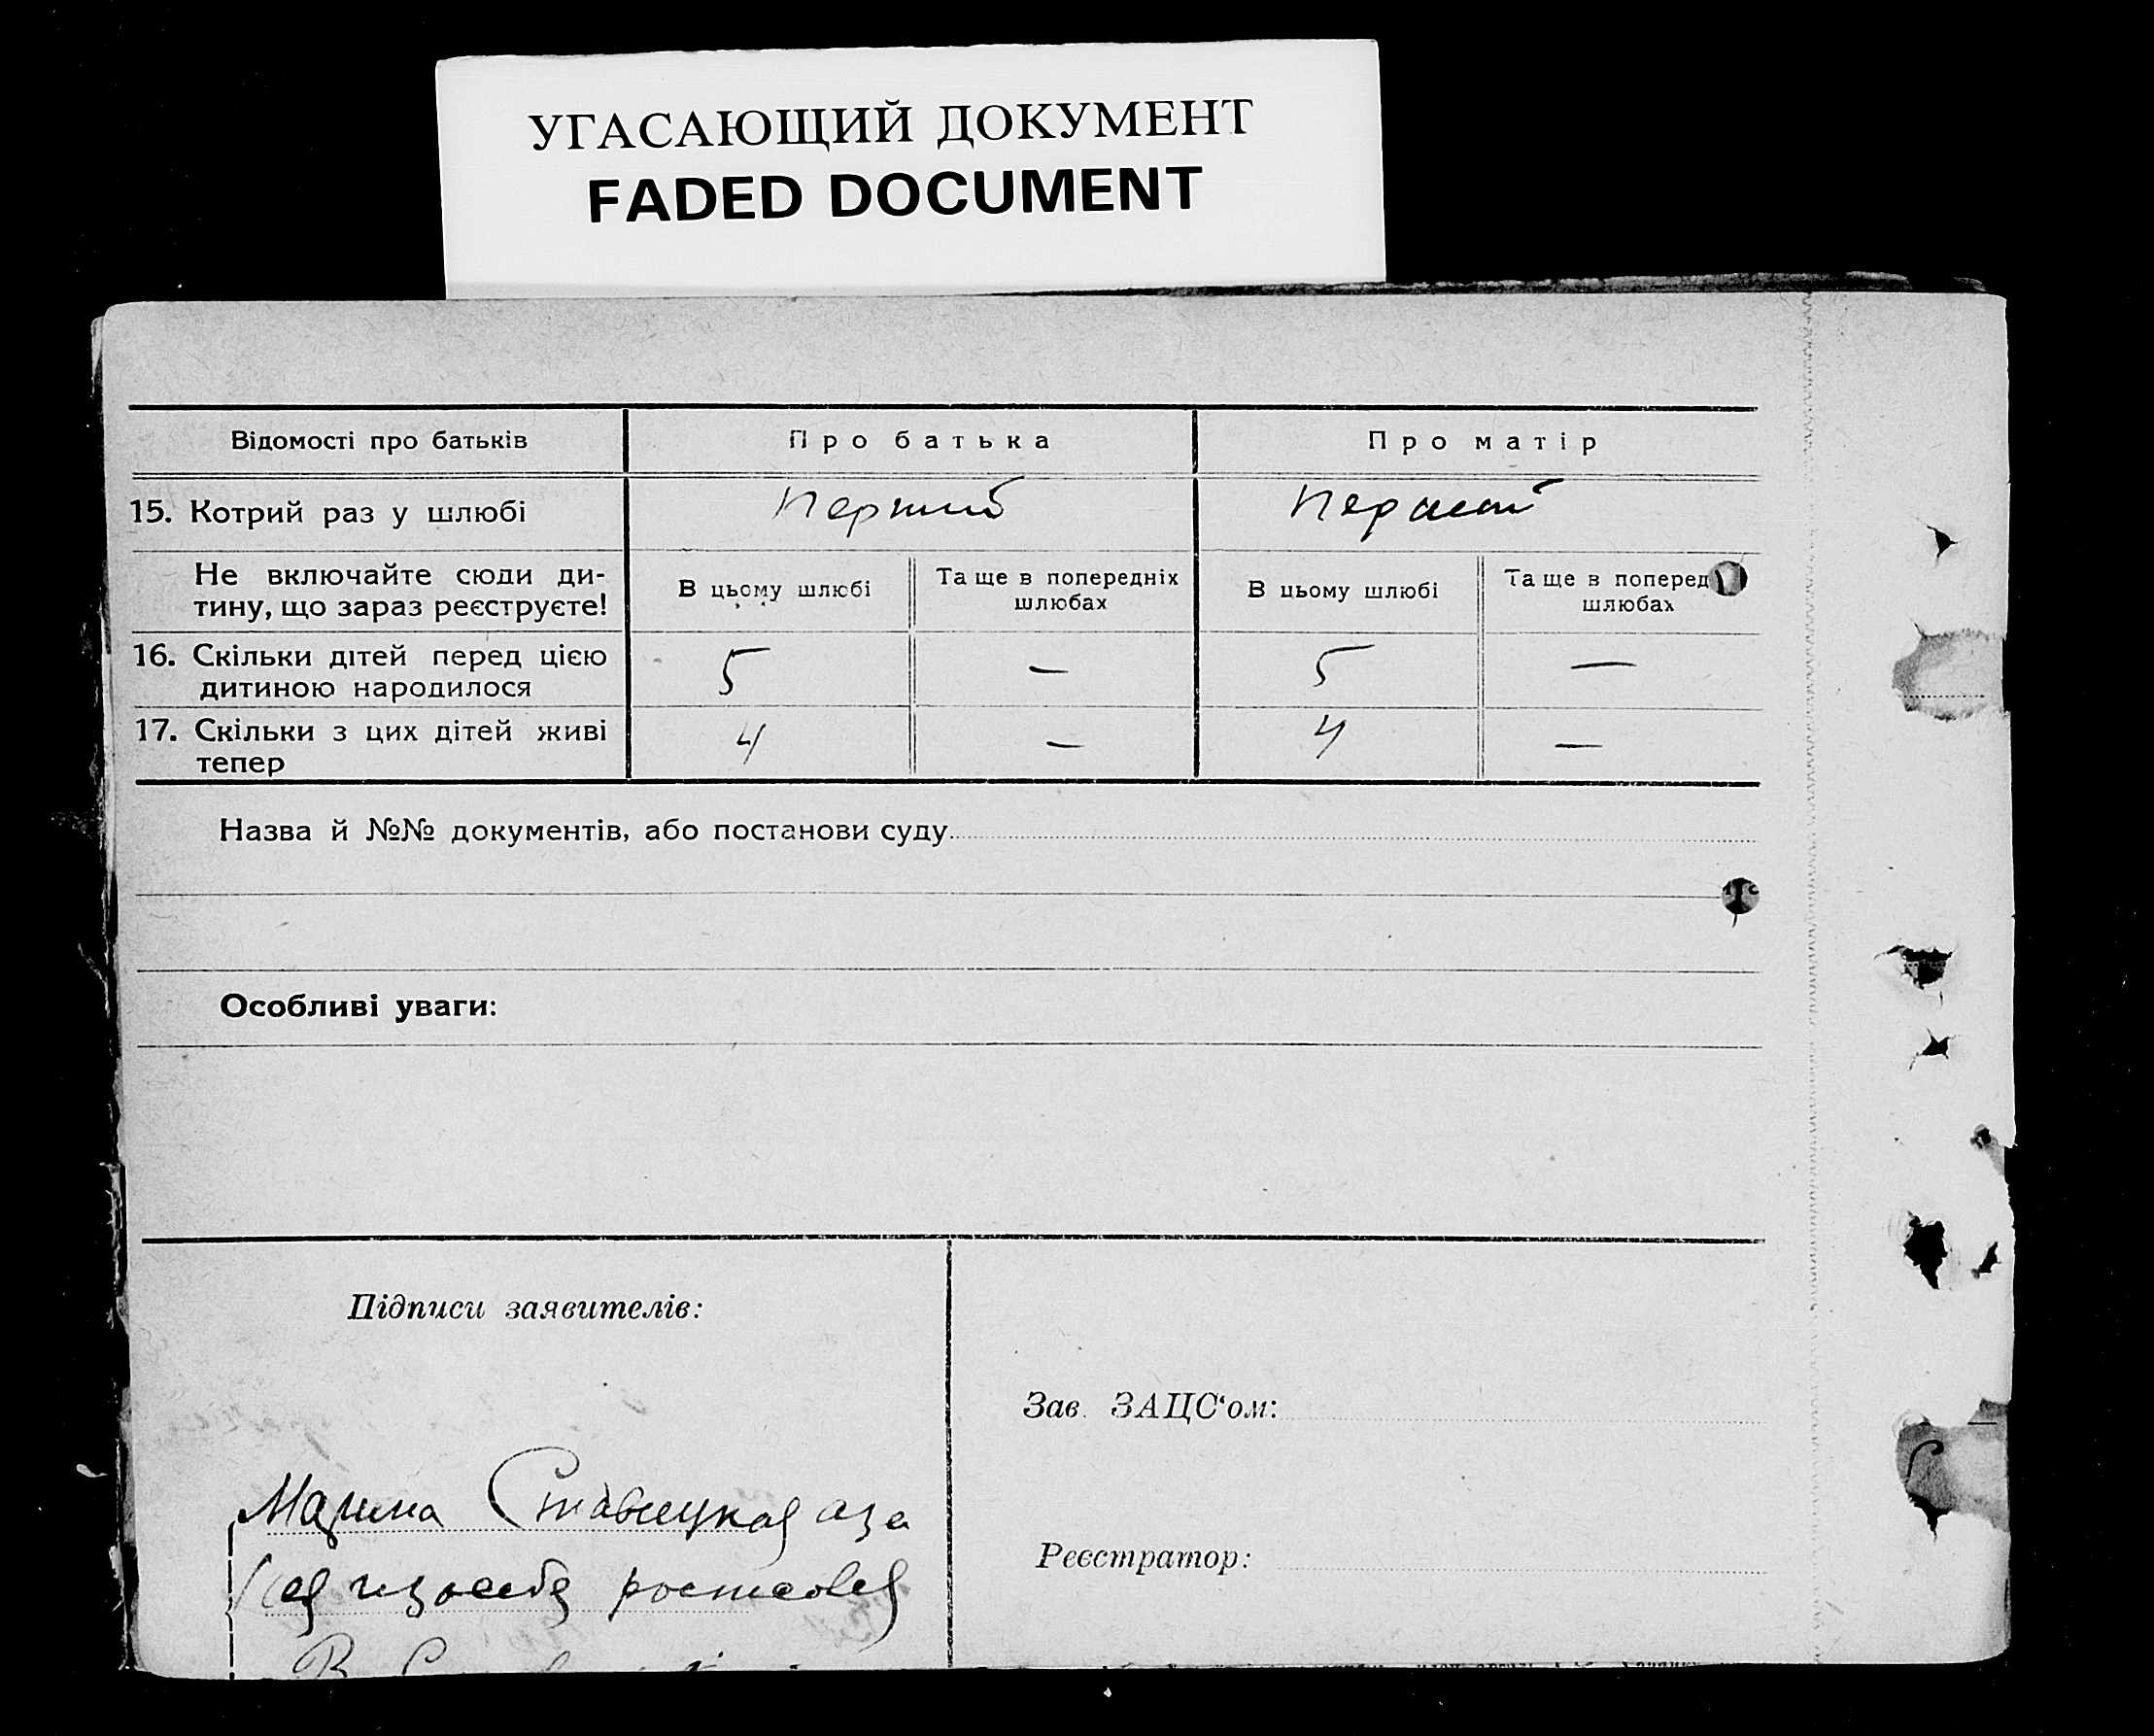 УГАСАЮЩИЙ ДОКУМЕНТ
FADED DOCUMENT
Відомості про батьків
Про батька
Про матір
15. Котрий раз у шлюбі
Перший
Перший
Не включайте сюди ди-
тину, що зараз реєструєте!
В цьому шлюбі
Та ще в попередніх
шлюбах
В цьому шлюбі
Та ще в поперед
шлюбах
16. Скільки дітей перед цією
дитиною народилося
5
—
5
—
17. Скільки з цих дітей живі
тепер
4
—
4
—
Назва й №№ документів, або постанови суду
Особливі уваги:
Підписи заявителів:
Зав. ЗАЦС‘ом:
Марина Ставецкая аза
Реєстратор: